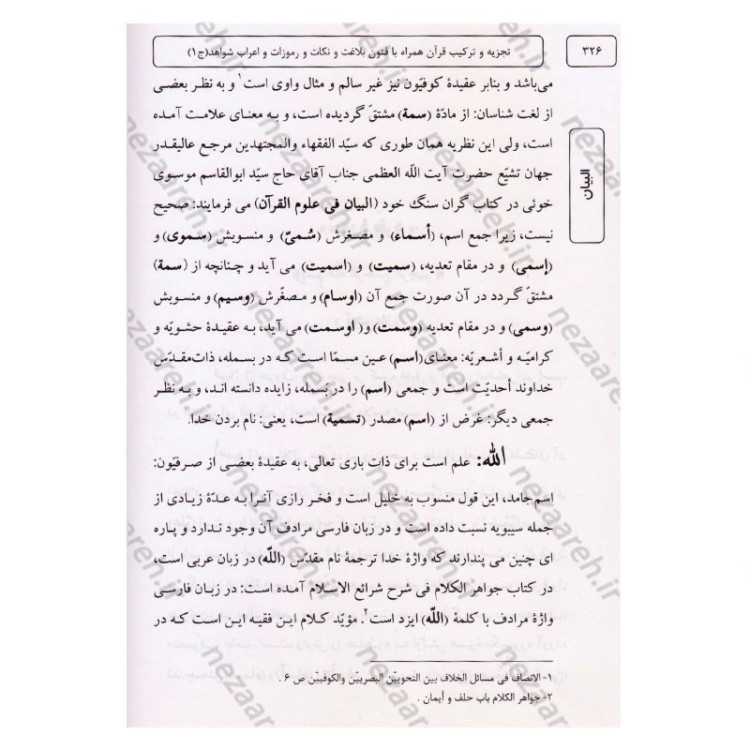 ۳۲۶
تجزیه و ترکیب قرآن همراه با فنون بلاغت و نکات و رموزات و اعراب شواهد(ج۱)
البیان
می‌باشد و بنابر عقیدهٔ کوفیّون نیز غیر سالم و مثال واوی است۱ و به نظر بعضی
از لغت شناسان: از مادّهٔ (سمة) مشتقّ گردیده است، و به معنای علامت آمده
است، ولی این نظریه همان طوری که سیّد الفقهاء والمجتهدین مرجع عالیقدر
جهان تشیّع حضرت آیت اللّه العظمی جناب آقای حاج سیّد ابوالقاسم موسوی
خوئی در کتاب گران سنگ خود (البیان فی علوم القرآن) می فرمایند: صحیح
نیست، زیرا جمع اسم، (أسماء) و مصغرش (سُمیّ) و منسوبش (سموی) و
(إسمی) و در مقام تعدیه، (سمیت) و (اسمیت) می آید و چنانچه از (سمة)
مشتقّ گردد در آن صورت جمع آن (اوسام) و مصغّرش (وسیم) و منسوبش
(وسمی) و در مقام تعدیه (وسمت) و( اوسمت) می آید، به عقیدهٔ حشویه و
کرامیّه و أشعریّه: معنای(اسم) عین مسمّا است که در بسمله، ذات‌مقدّس
خداوند أحدیّت است و جمعی (اسم) را در بَسمله، زایده دانسته اند، و به نظر
جمعی دیگر: غرض از (اسم) مصدر (تسمیة) است، یعنی: نام بردن خدا.
اللّه: علم است برای ذات باری تعالی، به عقیدهٔ بعضی از صرفیّون:
اسم جامد، این قول منسوب به خلیل است و فخر رازی آنرا به عدّهٔ زیادی از
جمله سیبویه نسبت داده است و در زبان فارسی مرادف آن وجود ندارد و پاره
ای چنین می پندارند که واژهٔ خدا ترجمهٔ نام مقدّس (اللّه) در زبان عربی است،
در کتاب جواهر الکلام فی شرح شرائع الاسلام آمده است: در زبان فارسی
واژهٔ مرادف با کلمهٔ (اللّه) ایزد است۲. مؤیّد کلام این فقیه این است که در
۱- الانصاف فی مسائل الخلاف بین النحویّین البصریّین والکوفیّین ص ۶ .
۲- جواهر الکلام باب حلف و أیمان .
nezaareh.ir